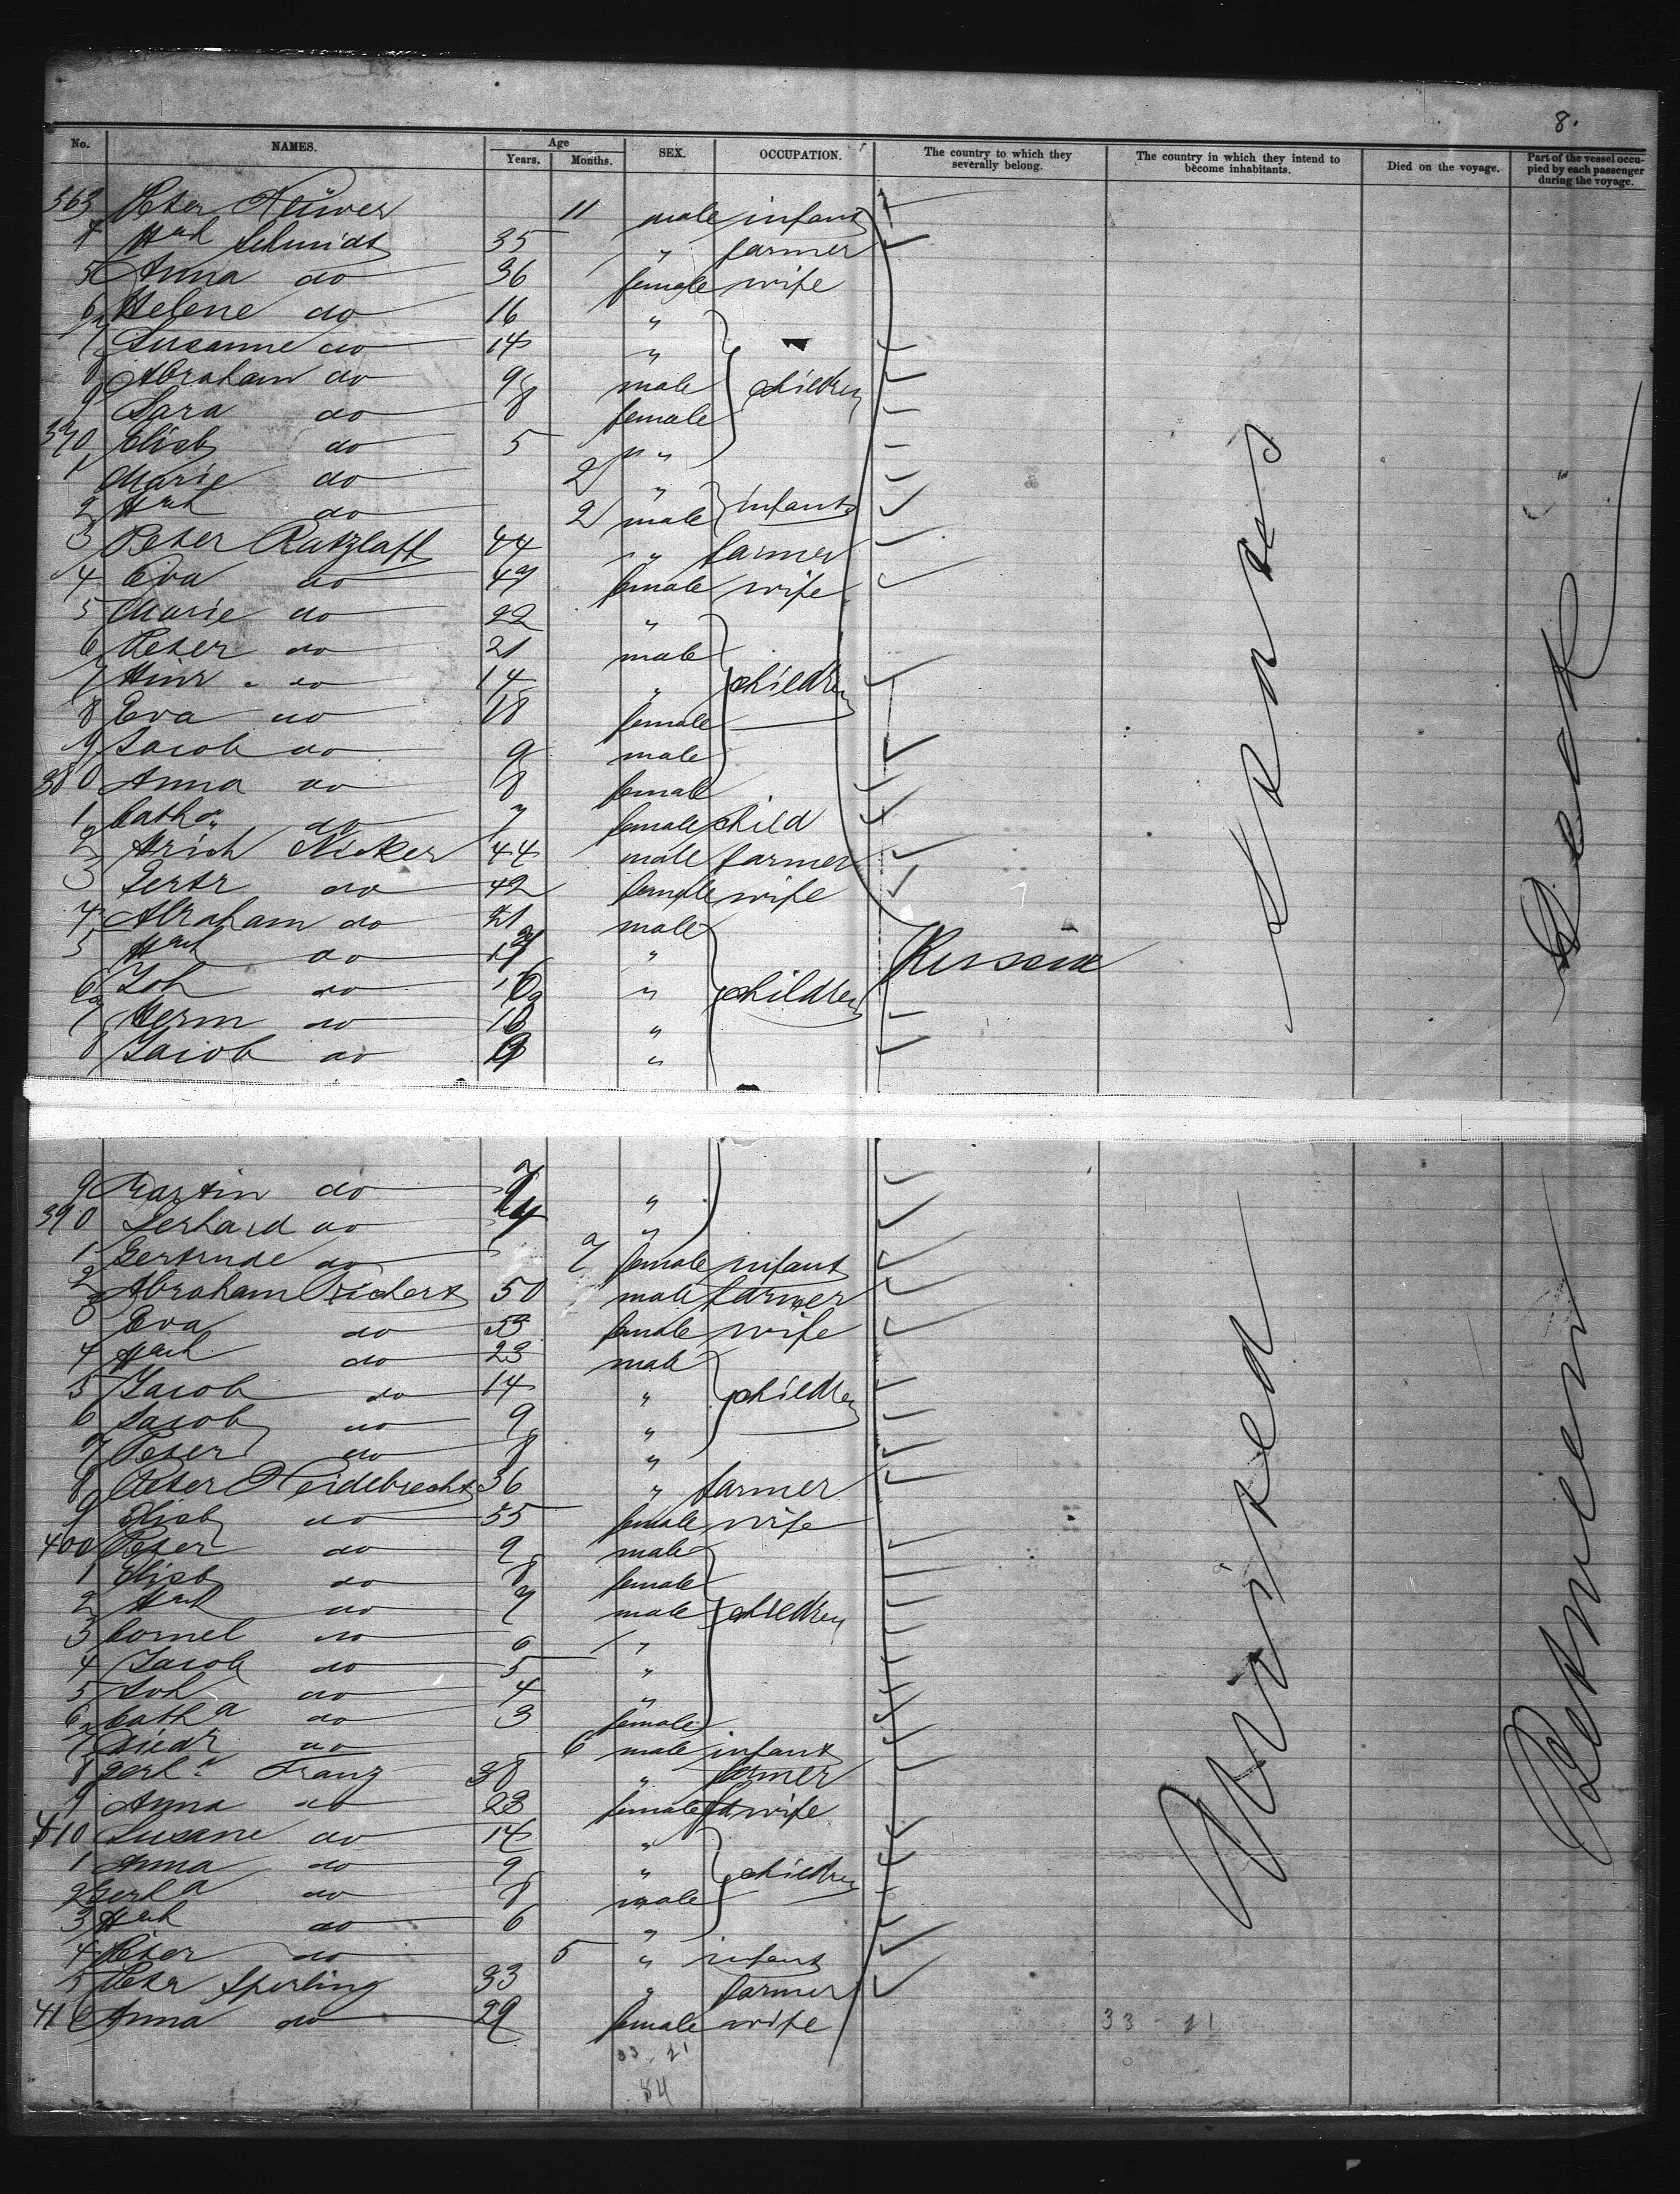 8.
No. NAMES. Age Years. Months. SEX. OCCUPATION. The country to which they severally belong. The country in which they intend to become inhabitants. Died on the voyage. Part of the vessel occupied by each passenger during the voyage.
363 Peter 11 male infant
4 Hch Schmidt 35 " farmer
5 Anna do 36 female wife
6 Helene do 16 "
7 Susanne do 14 "
8 Abraham do 9 male children
9 Sara do 8 female
370 Elisb do 5 "
1 Marie do 2 "
2 Hch do 2 male infants
3 Peter Ratzlaff 44 " farmer
4 Eva do 47 female wife
5 Marie do 22 "
6 Peter do 21 male
7 Hinr do 14 " children
8 Eva do 18 female
9 Jacob do 9 male
380 Anna do 8 female
1 Catha do 7 female child
2 Hrich Nickel 44 male farmer
3 Gertr do 42 female wife
4 Abraham do 21 male
5 Hch do "
Russia
6 Joh do " children
7 Herm do "
8 Jacob do "
9 Martin do "
390 Gerhard do 4 "
1 Gertrude do 7 female infant
2 Abraham Richert 50 male farmer
3 Eva do 53 female wife
4 Hch do 23 male
5 Jacob do 14 " children
6 Jacob do 9 "
7 Peter do 8 "
8 Peter Heidebrecht 36 " farmer
9 Elisb do 35 female wife
400 Peter do 9 male
1 Elisb do 8 female
2 Hch do 7 male children
3 Cornel do 6 "
4 Jacob do 5 "
5 Joh do 4 "
6 Catha do 3 female
7 Diedr do 6 male infant
8 Gerh Franz 38 " farmer
9 Anna do 23 female wife
410 Susane do 14 "
1 Anna do 9 " children
2 Gerh do 8 male
3 Hch do 6 "
4 Peter do 5 " infant
5 Peter Sperling 33 " farmer
416 Anna do 29 female wife
33 21
33 21
84
United
Kansas
Between
Deck